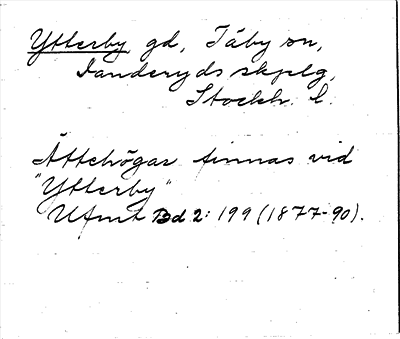 Ytterby gd, Täby sn,
Danderyds skplg,
Stockh. l.
Ättehögar finnas vid
"Ytterby"
Ufmt Bd 2: 199 (1877-90).